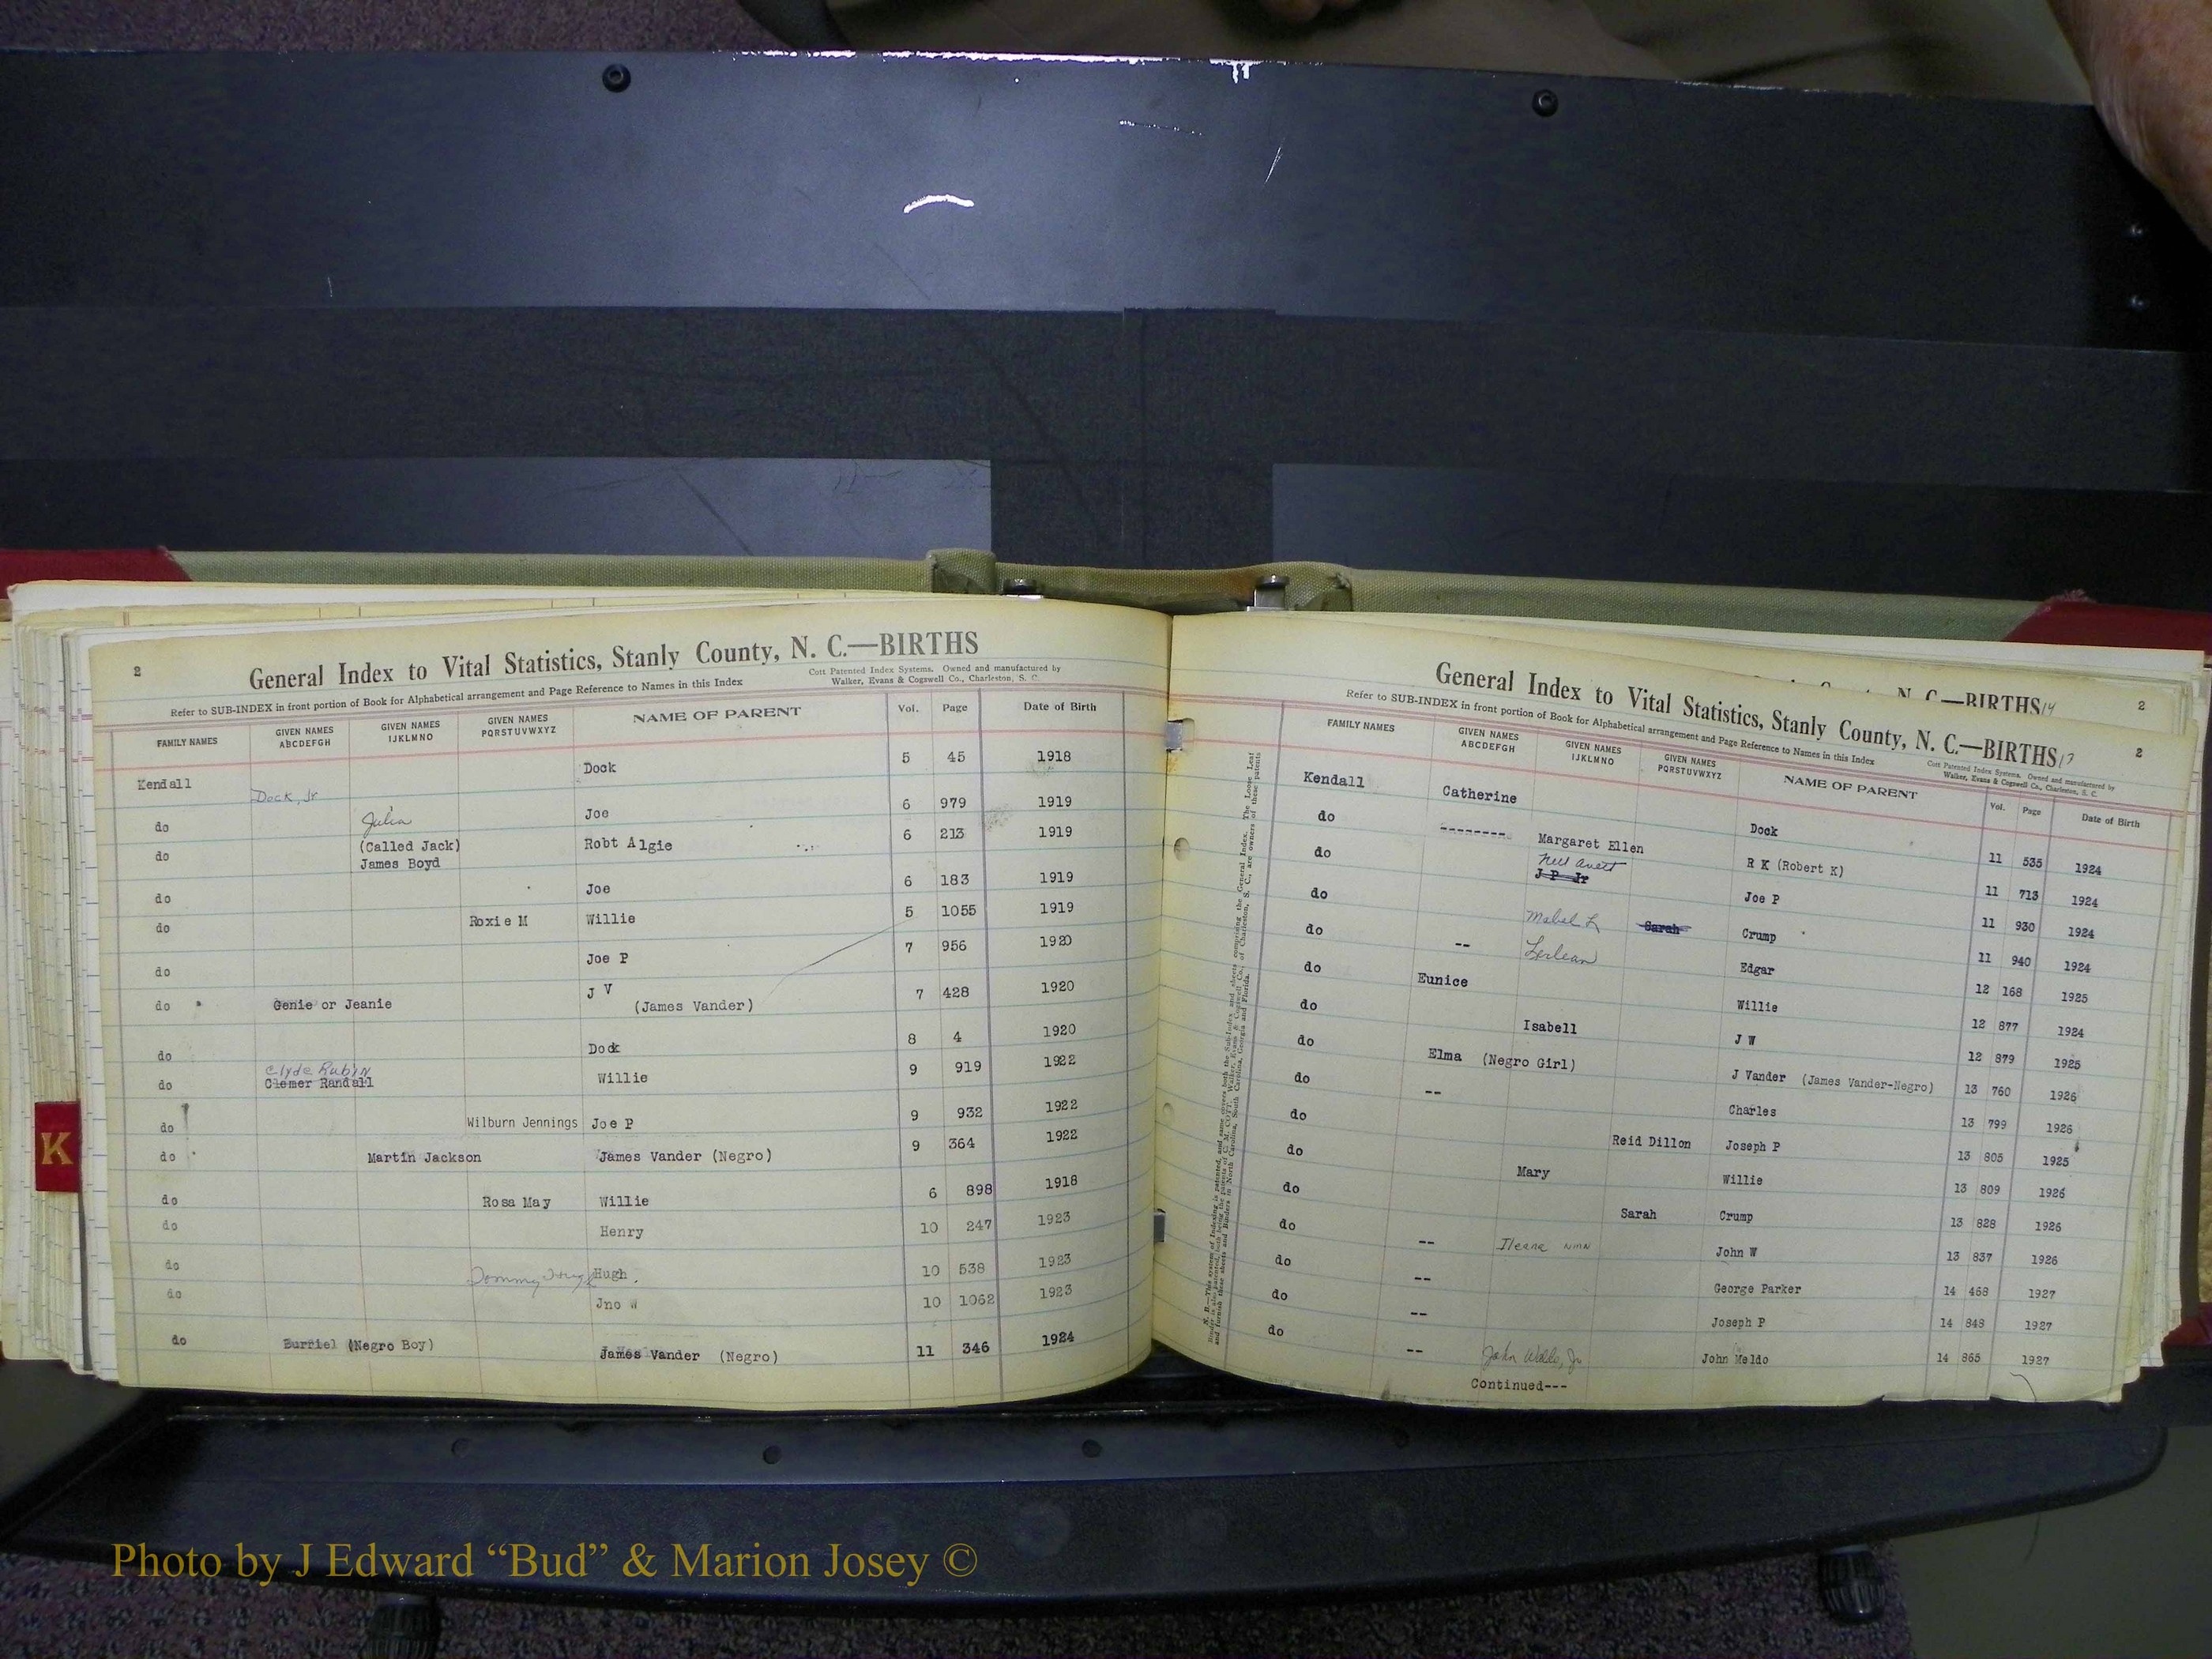 2
General Index to Vital Statistics, Stanly County, N. C.—BIRTHS
Refer to SUB-INDEX in front portion of Book for Alphabetical arrangement and Page Reference to Names in this Index
Cott Patented Index Systems. Owned and manufactured by
Walker, Evans & Cogswell Co., Charleston, S. C.
FAMILY NAMES GIVEN NAMES ABCDEFGH GIVEN NAMES IJKLMNO GIVEN NAMES PQRSTUVWXYZ NAME OF PARENT Vol. Page Date of Birth
Kendall Dock, Jr Dock 5 45 1918
do Julia Joe 6 979 1919
do (Called Jack) James Boyd Robt Algie 6 213 1919
do Joe 6 183 1919
do Roxie M Willie 5 1055 1919
do Joe P 7 956 1920
do Genie or Jeanie J V (James Vander) 7 428 1920
do Dock 8 4 1920
do Clyde Rubin Clemer Randall Willie 9 919 1922
do Wilburn Jennings Joe P 9 932 1922
do Martin Jackson James Vander (Negro) 9 364 1922
do Rosa May Willie 6 898 1918
do Henry 10 247 1923
do Tommy Hugh 10 538 1923
do Jno W 10 1062 1923
do Burriel (Negro Boy) James Vander (Negro) 11 346 1924
K
N. C.—BIRTHS 14
2
General Index to Vital Statistics, Stanly County, N. C.—BIRTHS 17
2
Refer to SUB-INDEX in front portion of Book for Alphabetical arrangement and Page Reference to Names in this Index
Cott Patented Index Systems. Owned and manufactured by
Walker, Evans & Cogswell Co., Charleston, S. C.
FAMILY NAMES GIVEN NAMES ABCDEFGH GIVEN NAMES IJKLMNO GIVEN NAMES PQRSTUVWXYZ NAME OF PARENT Vol. Page Date of Birth
Kendall Catherine Dock 11 535 1924
do -------- Margaret Ellen R K (Robert K) 11 713 1924
do J P Jr Joe P 11 930 1924
do Mabel L Sarah Crump 11 940 1924
do -- Lerlean Edgar 12 168 1925
do Eunice Willie 12 877 1924
do Isabell J W 12 879 1925
do Elma (Negro Girl) J Vander (James Vander-Negro) 13 760 1926
do -- Charles 13 799 1926
do Reid Dillon Joseph P 13 805 1925
do Mary Willie 13 809 1926
do Sarah Crump 13 828 1926
do -- Ileane NMN John W 13 837 1926
do -- George Parker 14 468 1927
do -- Joseph P 14 848 1927
do -- John Waldo, Jr John Meldo 14 865 1927
Continued---
Photo by J Edward “Bud” & Marion Josey ©